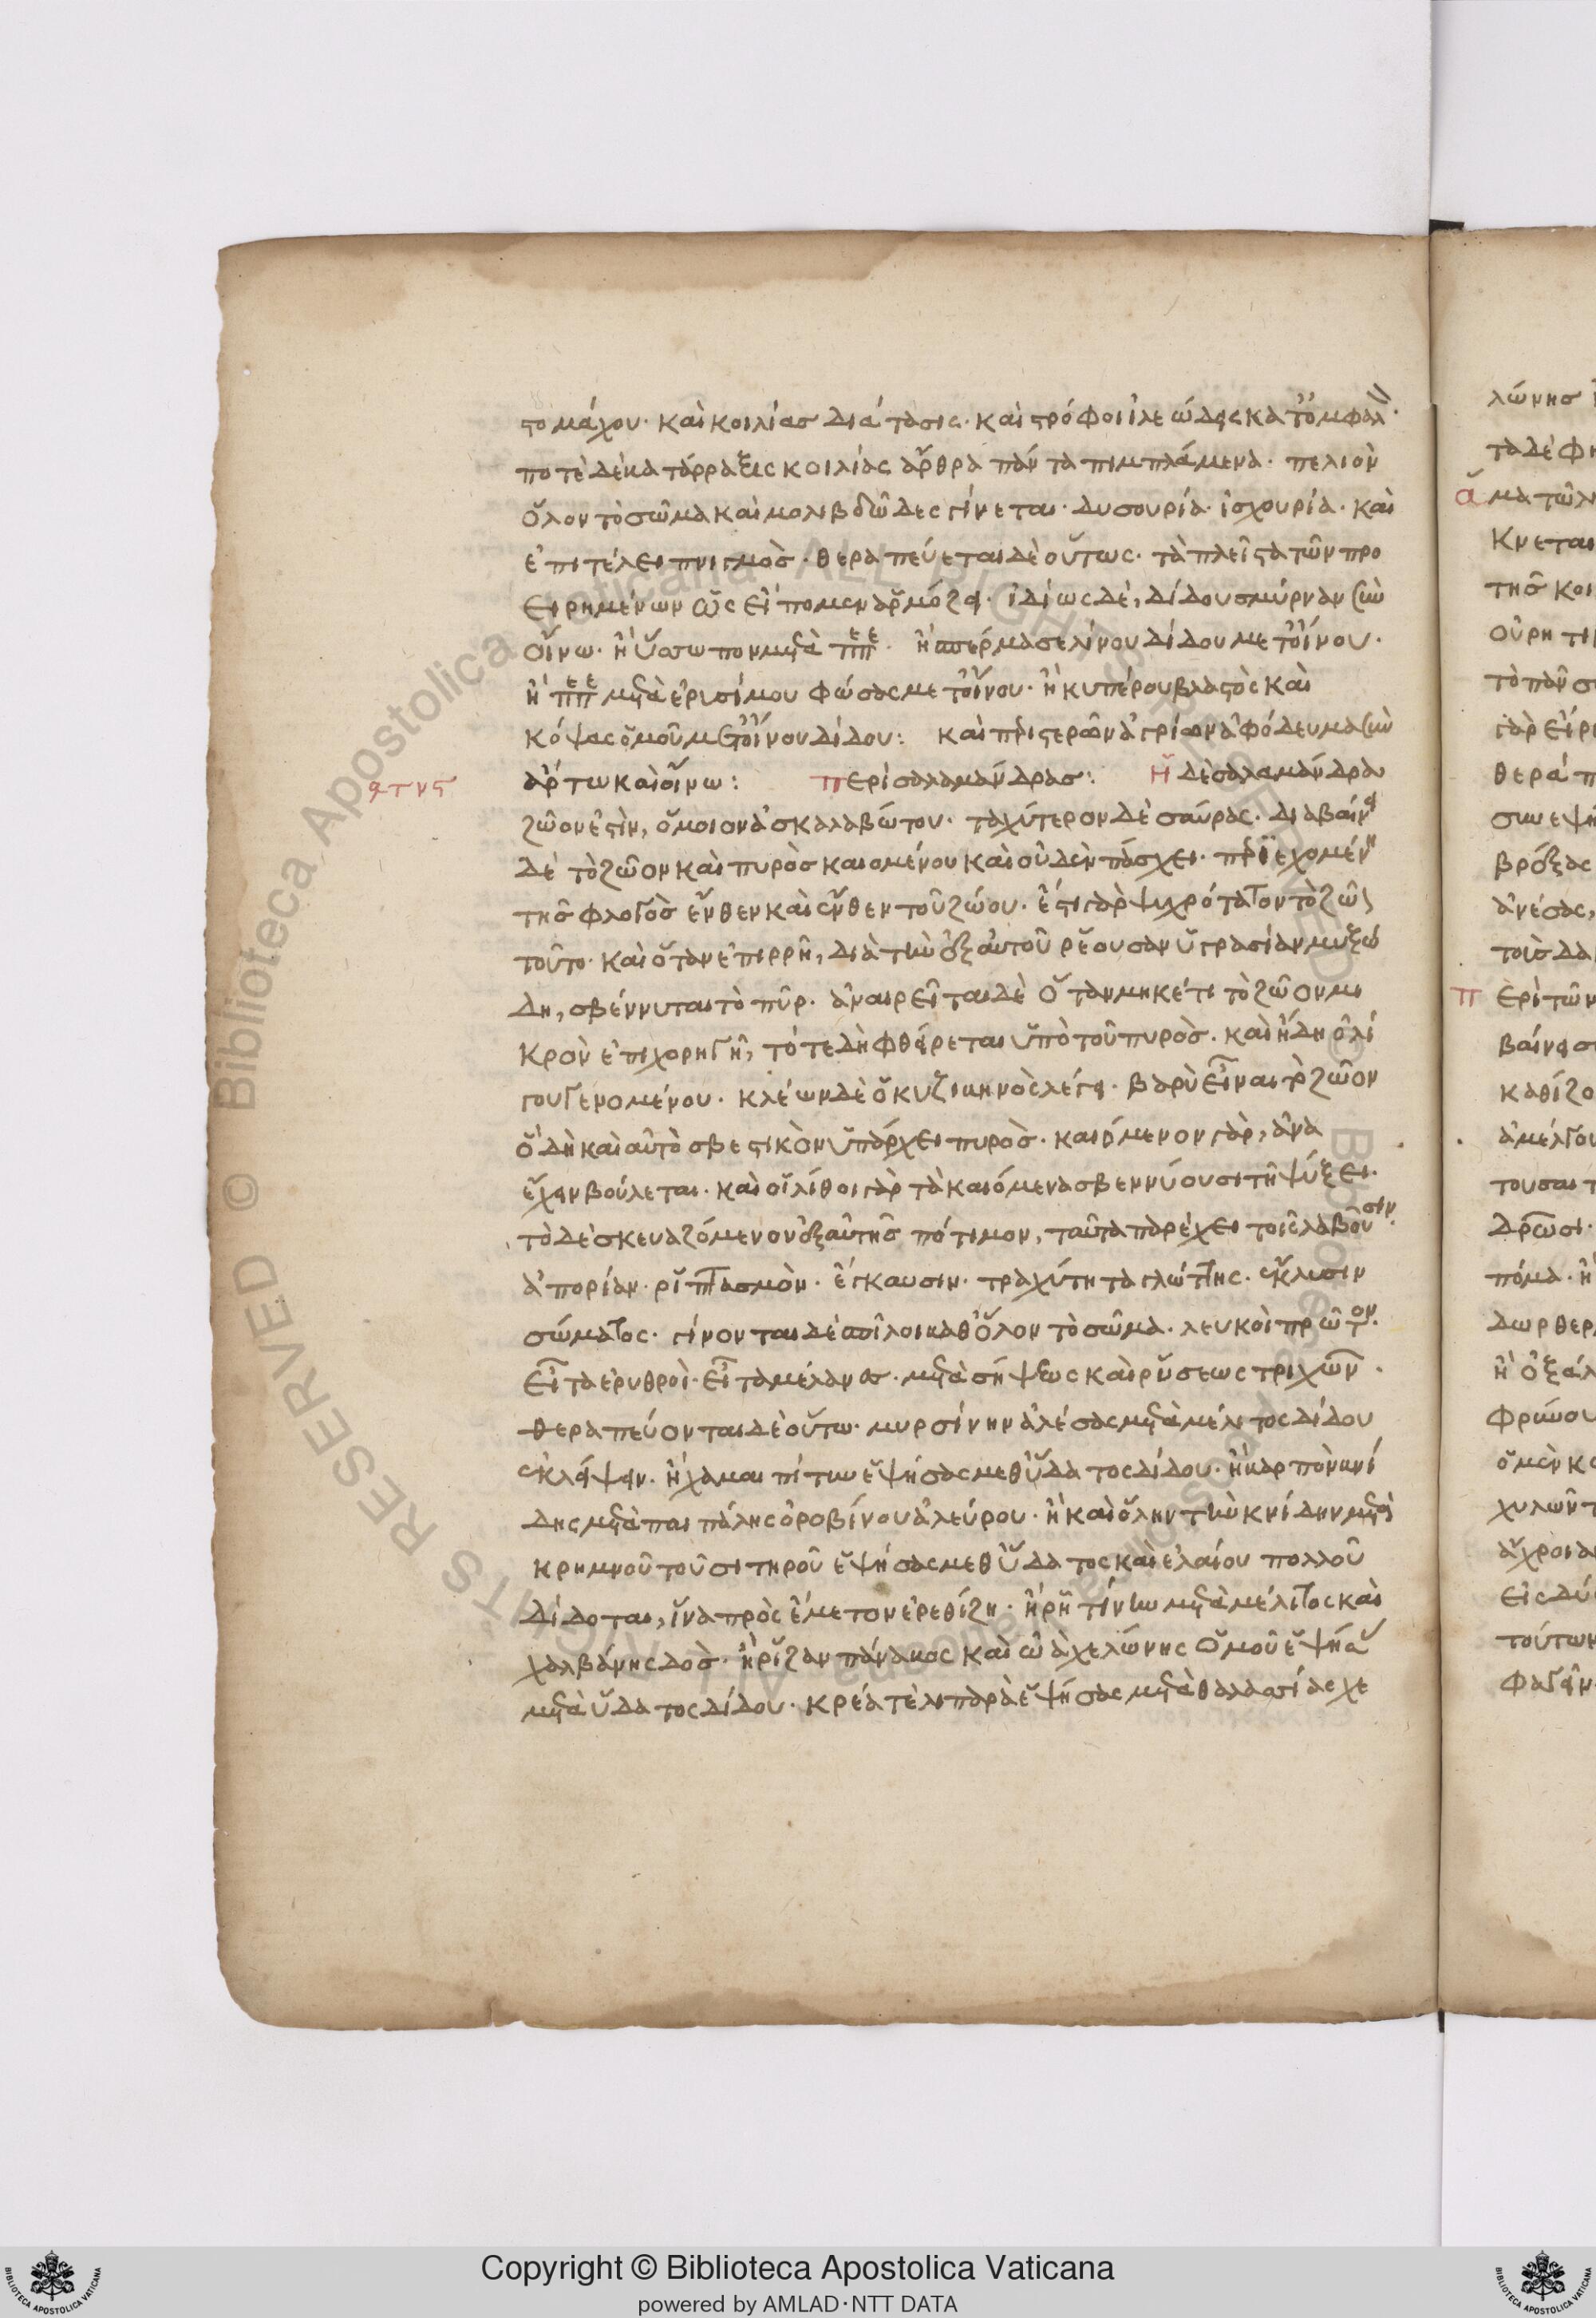 στομάχου· καὶ κοιλίας διάτασις· καὶ στρόφοι ἰλεώδεις κατ' ὀμφαλ
ποτὲ δὲ κατάρραξις κοιλίας ἄρθρα πάντα πιμπλάμενα· πελιὸν
ὅλον τὸ σῶμα καὶ μολιβδῶδες γίνεται· δυσουρία· ἰσχουρία· καὶ
ἐπιτέλει πνιγμὸς· θεραπεύεται δὲ οὕτως· τὰ πλεῖστα τῶν προ
ειρημένων ὡς εἴπομεν ἁρμόζει· ἰδίως δὲ, δίδου σμύρναν σὺν
οἴνω· ἢ ὕσωπον μετὰ πεπε· ἢ σπέρμα σελίνου δίδου μετ' οἴνου·
ἢ πεπε μετὰ ἐρισίμου φώσας μετ' οἴνου· ἢ κυπέρου βλαστὸς καὶ
κόψας ὁμοῦ μετ' οἴνου δίδου: καὶ περιστερῶν ἀγρίων ἀφόδευμα σὺν
ἄρτω καὶ οἴνω: Περὶ σαλαμάνδρας: Ἡ δὲ σαλαμάνδρα
ζῶον ἐστὶν, ὅμοιον ἀσκαλαβώτου· ταχύτερον δὲ σαύρας· διαβαίνει
δὲ τὸ ζῶον καὶ πυρὸς καιομένου καὶ οὐδὲν πάσχει· περιεχομένη
τῆς φλογὸς ἔνθεν καὶ ἔνθεν τοῦ ζώου· ἔστι γὰρ ψυχρότατον τὸ ζῶον
τοῦτο· καὶ ὅταν ἐπιρρῆ, διὰ τὴν ἐξ αὐτοῦ ῥέουσαν ὑγρασίαν μυξώ
δη, σβέννυται τὸ πῦρ· ἀναιρεῖται δὲ ὅταν μηκέτι τὸ ζῶον μι
κρὸν ἐπιχορηγῆ, τότε δὴ φθείρεται ὑπὸ τοῦ πυρὸς· καὶ ἤδη ὀλί
γου γενομένου· κλέων δὲ ὁ κυζικηνὸς λέγει· βαρὺ εἶναι τὸ ζῶον
ὃ δὴ καὶ αὐτὸ σβεστικὸν ὑπάρχει πυρὸς· καιόμενον γὰρ, ἀνα
έχειν βούλεται· καὶ οἱ λίθοι γὰρ τὰ καιόμενα σβεννύουσι τῆ ψύξει·
τὸ δὲ σκευαζόμενον ἐξ αὐτῆς πότιμον, ταῦτα παρέχει τοῖς λαβοῦσιν·
ἀπορίαν· ῥιπτασμὸν· ἔγκαυσιν· τραχύτητα γλώττης· ἔκλυσιν
σώματος· γίνονται δὲ σπῖλοι καθ' ὅλον τὸ σῶμα· λευκοὶ πρῶτον·
εἶτα ἐρυθροὶ· εἶτα μέλανες· μετὰ σήψεως καὶ ῥύσεως τριχῶν·
θεραπεύονται δὲ οὕτω· μυρσίνην ἀλέσας μετὰ μέλιτος δίδου
ἐκλείψειν· ἢ χαμαιπίτυν ἑψήσας μεθ' ὕδατος δίδου· ἢ καρπὸν κνί
δης μετὰ παιπάλης ὀροβίνου ἀλεύρου· ἢ καὶ ὅλην τὴν κνίδην μετὰ
κρημνοῦ τοῦ σιτηροῦ ἑψήσας μεθ' ὕδατος καὶ ἐλαίου πολλοῦ
δίδοται, ἵνα πρὸς ἔμετον ἐρεθίζη· ἢ ῥητίνην μετὰ μέλιτος καὶ
χαλβάνης δὸς· ἢ ῥίζαν πάνακος καὶ ὠὰ χελώνης ὁμοῦ ἑψήσας
μετὰ ὕδατος δίδου· κρέα τὲ λιπαρὰ ἑψήσας μετὰ θαλασσίας χε
Copyright © Biblioteca Apostolica Vaticana
powered by AMLAD·NTT DATA